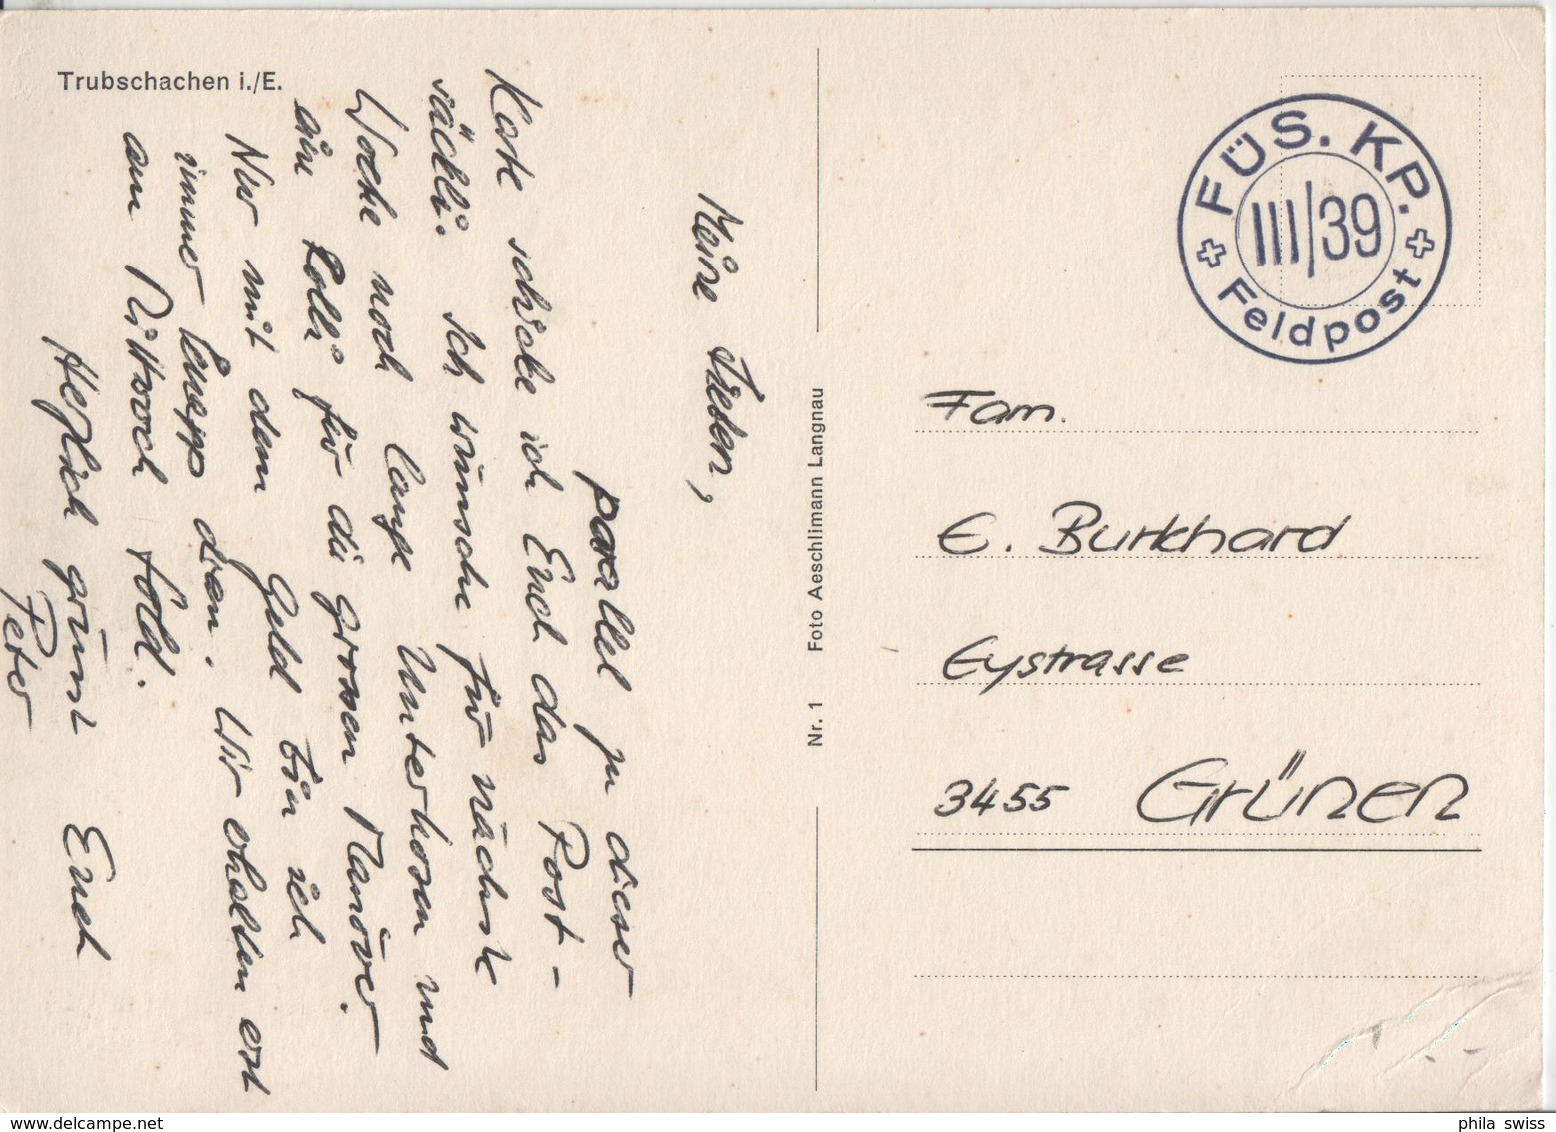 Trubschachen i./E.
Meine Lieben,
parallel zu dieser
Karte schicke ich Euch das Post-
säckli. Ich wünsche für nächste
Woche noch lange Unterhosen und
ein Rolli für die grossen Manöver.
Nur mit dem Geld bin ich
immer knapp dran. Wir erhalten erst
am Mittwoch Sold.
Herzlich grüsst Euch
Peter
Nr. 1 Foto Aeschlimann Langnau
FÜS. KP.
III/39
Feldpost
Fam.
E. Burkhard
Eystrasse
3455 GRÜNEN
phila swiss